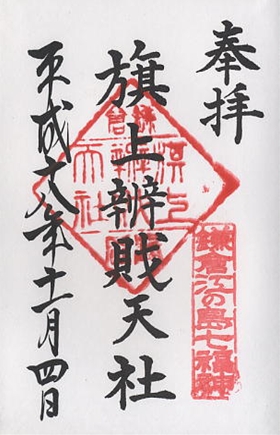 奉拝
鎌倉江の島七福神
旗上辨財天社
平成十八年十一月四日